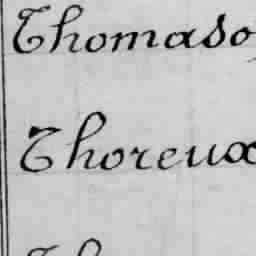 Thomaso
Thoreux